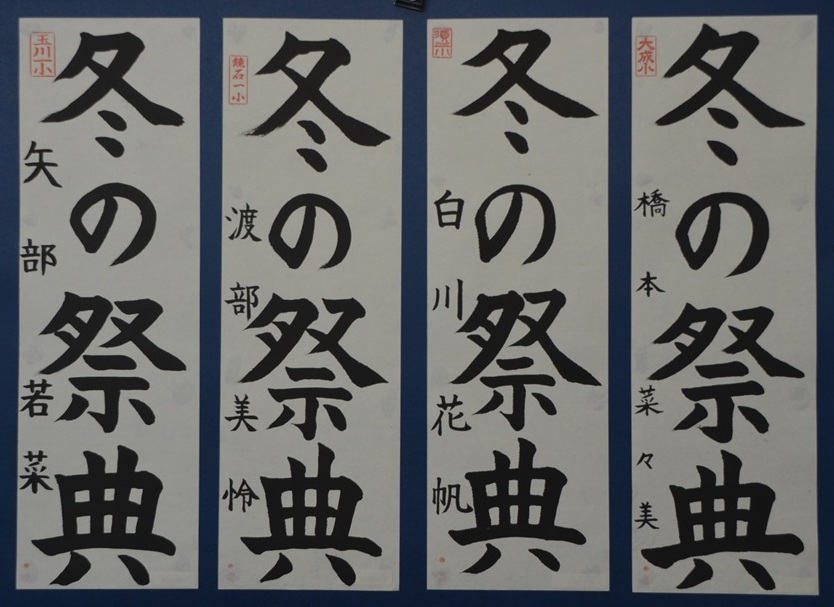 大成小
冬の祭典
橋本菜々美
須小
冬の祭典
白川花帆
鏡石一小
冬の祭典
渡部美怜
玉川一小
冬の祭典
矢部若菜